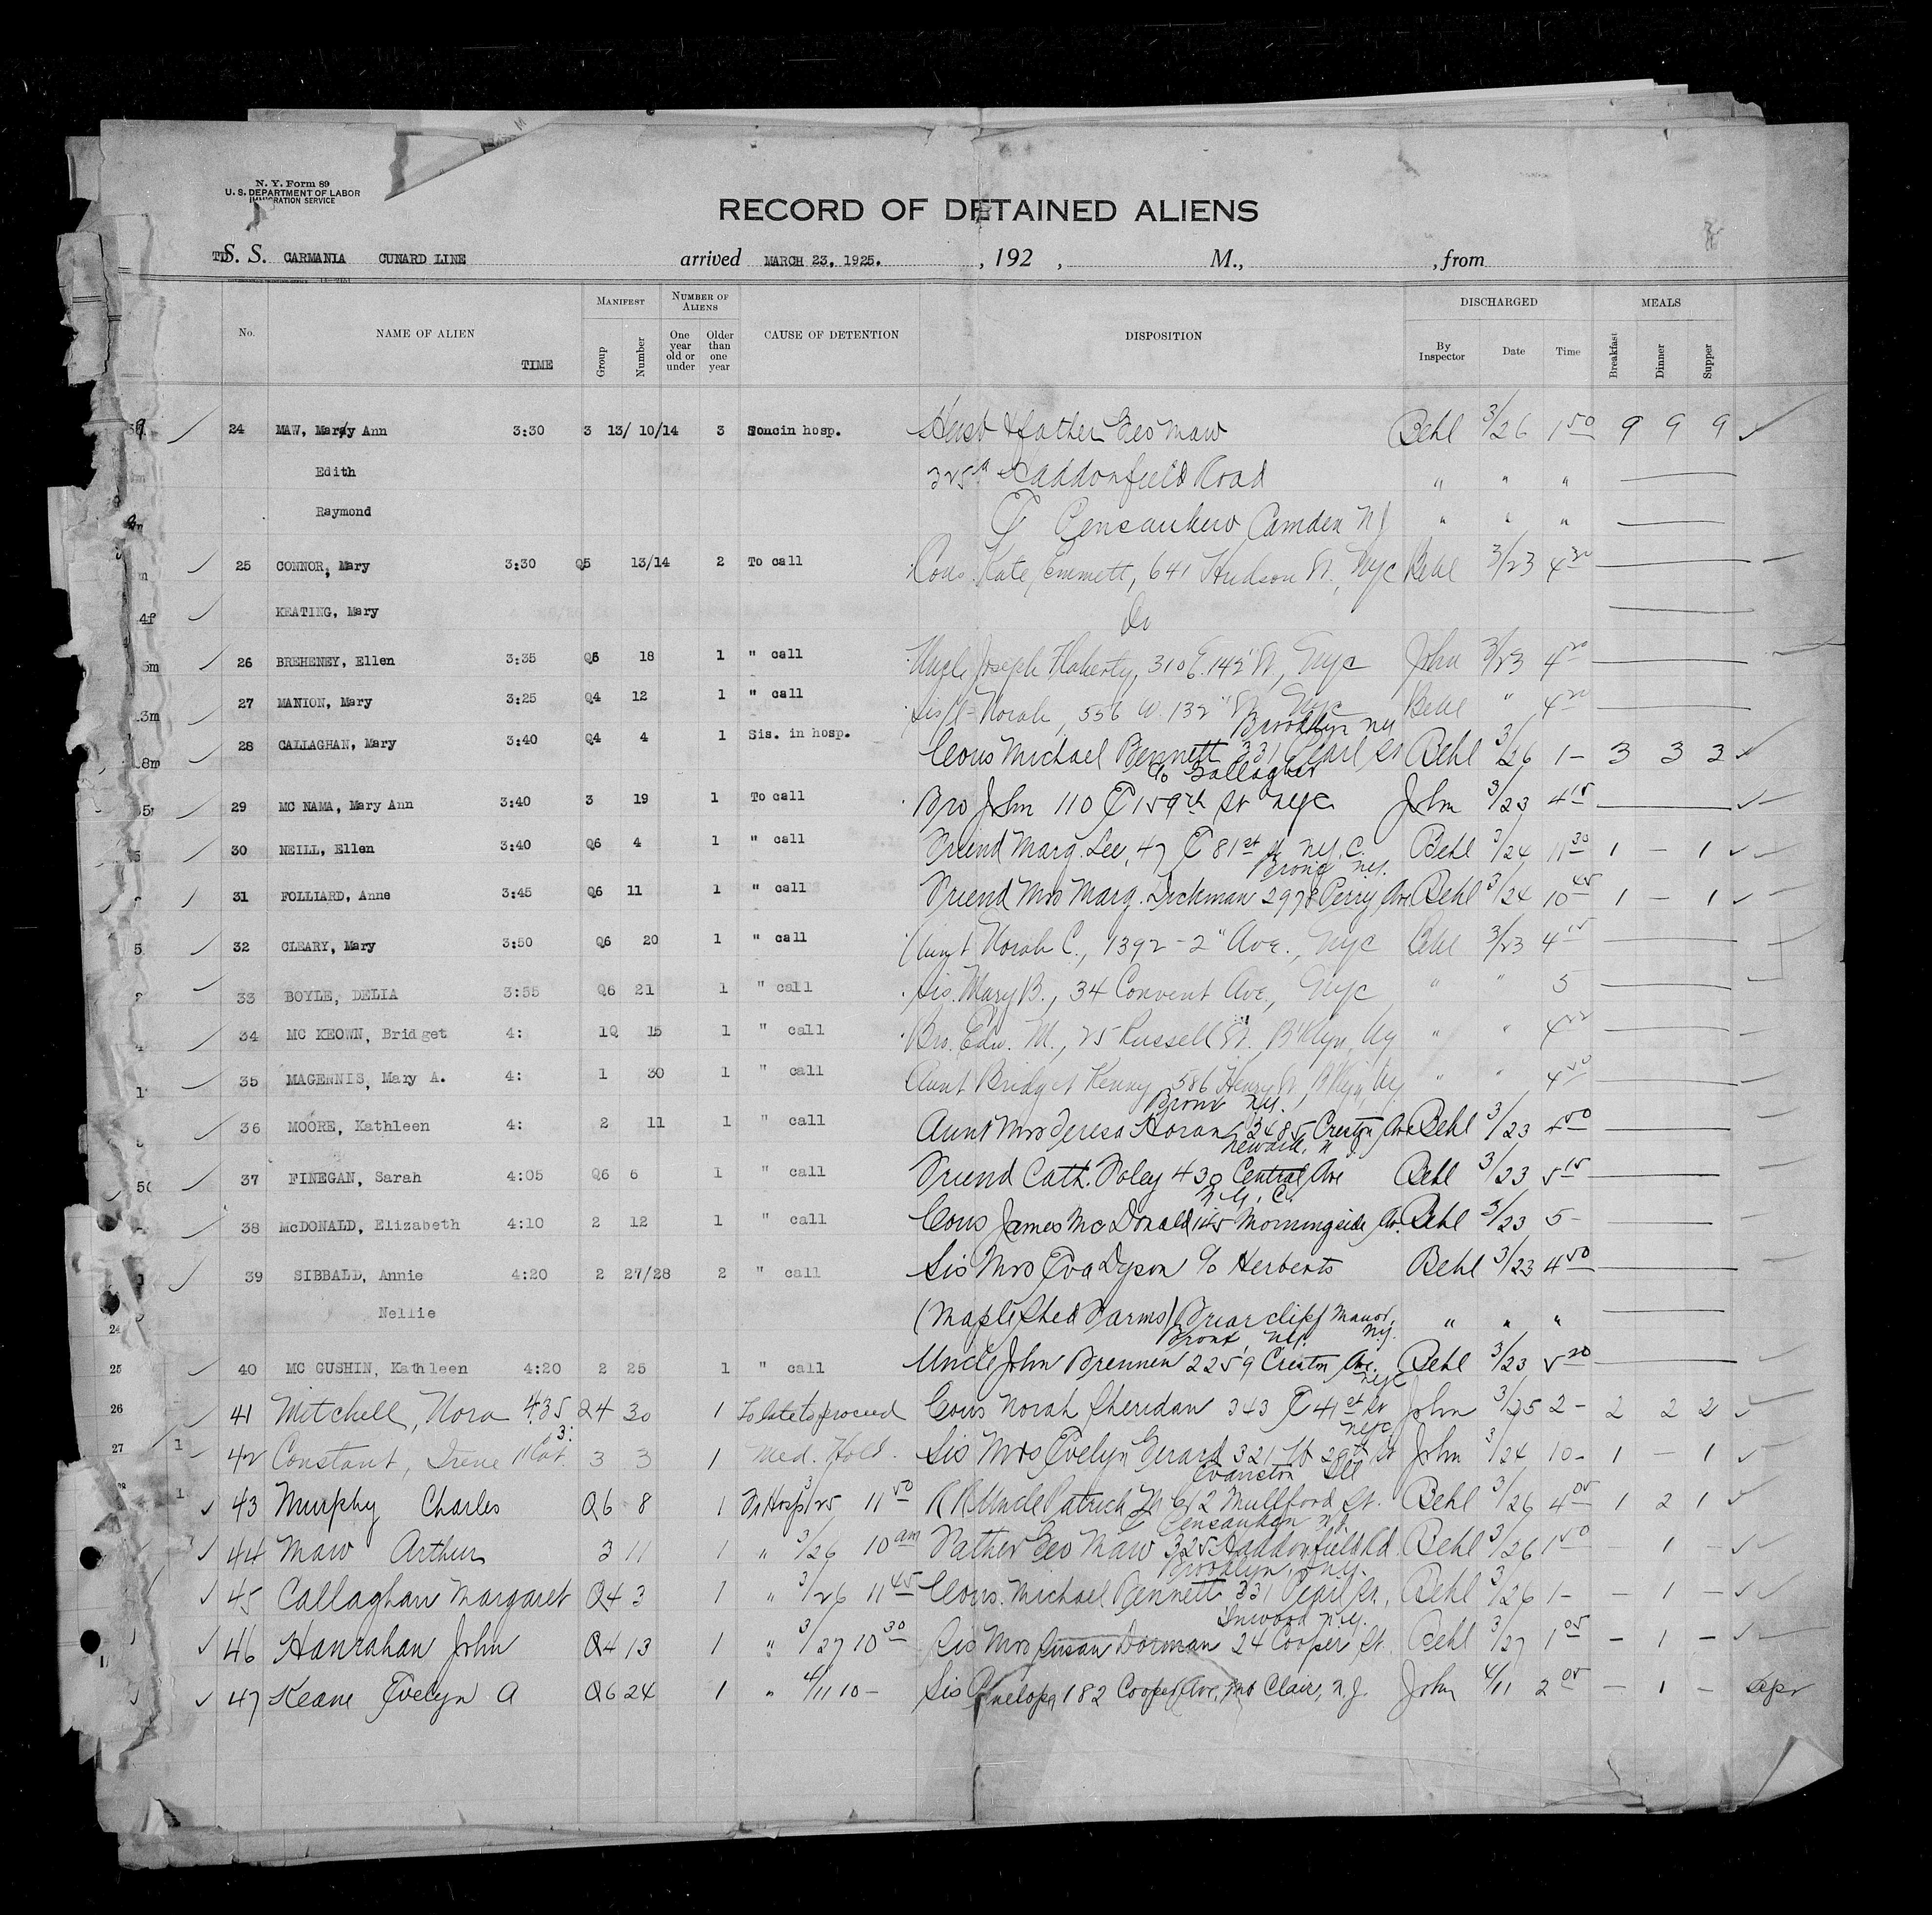 N. Y. Form 89
U. S. DEPARTMENT OF LABOR
IMMIGRATION SERVICE
RECORD OF DETAINED ALIENS
S. S. CARMANIA CUNARD LINE arrived MARCH 23, 1925. , 192 , M., , from
No. NAME OF ALIEN TIME MANIFEST Group Number NUMBER OF ALIENS One year old or under Older than one year CAUSE OF DETENTION DISPOSITION DISCHARGED By Inspector Date Time MEALS Breakfast Dinner Supper
24 MAW, Mary Ann 3:30 3 13/ 10/14 3 in hosp. Husb & father Geo Maw Behl 3/26 1 50 9 9 9
Edith 325 Haddonfield Road " " "
Raymond Camden NJ " " "
25 CONNOR, Mary 3:30 Q5 13/14 2 To call Cous. Kate Emmett, 641 Hudson St., Nyc Behl 3/23 4 30
KEATING, Mary Do
26 BREHENEY, Ellen 3:35 Q6 18 1 " call Uncle Joseph Flaherty, 310 E. 142" St., Nyc John 3/23 4 20
27 MANION, Mary 3:25 Q4 12 1 " call Norah, 556 W. 132" St., Nyc Behl " 4 20
28 CALLAGHAN, Mary 3:40 Q4 4 1 Sis. in hosp. Cous Michael Bennett 331 Pearl St Brooklyn NY Behl 3/26 1- 3 3 3
c/o Gallagher
29 MC NAMA, Mary Ann 3:40 3 19 1 To call Bro John 110 E 159th St NYC John 3/23 4 15
30 NEILL, Ellen 3:40 Q6 4 1 " call Friend Marg. Lee, 47 E 81st St N.Y.C. Behl 3/24 11 30 1 - 1
31 FOLLIARD, Anne 3:45 Q6 11 1 " call Friend Mrs Marg. Dickman 2978 Perry Ave Bronx N.Y. Behl 3/24 10 45 1 - 1
32 CLEARY, Mary 3:50 Q6 20 1 " call Aunt Norah C., 1392 - 2" Ave., Nyc Behl 3/23 4 15
33 BOYLE, DELIA 3:55 Q6 21 1 " call Sis. Mary B., 34 Convent Ave., Nyc " " 5
34 MC KEOWN, Bridget 4: 1Q 15 1 " call Bro. Edw. M., 25 Russell St., B'klyn, Ny " "
35 MAGENNIS, Mary A. 4: 1 30 1 " call Aunt Bridget Kenny 586 Henry St, B'klyn, Ny " "
36 MOORE, Kathleen 4: 2 11 1 " call Aunt Mrs Teresa Horan 2485 Creston Ave Bronx N.Y. Behl 3/23 4 50
37 FINEGAN, Sarah 4:05 Q6 6 1 " call Friend Cath. Foley 430 Central Ave Newark, N J. Behl 3/23 5 15
38 McDONALD, Elizabeth 4:10 2 12 1 " call Cous James McDonald 145 Morningside Av. N.Y.C. Behl 3/23 5-
39 SIBBALD, Annie 4:20 2 27/28 2 " call Sis Mrs Eva Dyson c/o Herberts Behl 3/23 4 50
Nellie (Maple Shed Farms) Briarcliff Manor, N.Y. " " "
40 MC GUSHIN, Kathleen 4:20 2 25 1 " call Uncle John Brennen 2259 Creston Ave. Bronx, N.Y. Behl 3/23 5 20
41 Mitchell, Nora 4:35 24 30 1 To late to proceed Cous Norah Sheridan 343 E 41st St NYC John 3/25 2- 2 2 2
42 Constant, Irene 3 3 1 Med. Hold. Sis Mrs Evelyn Gerard 321 W 29th St NYC John 3/24 10- 1 - 1
43 Murphy Charles Q6 8 1 In Hosp 3/25 11 50 R R Uncle Patrick M 612 Mullford St. Evanston Ill Behl 3/26 4 05 1 2 1
44 Maw Arthur 3 11 1 " 3/26 10 am Father Geo Maw 325 Haddonfield Rd. Behl 3/26 1 50 1 -
45 Callaghan Margaret Q4 3 1 " 3/26 11 45 Cous. Michael Bennett 331 Pearl St. Brooklyn, N.Y. Behl 3/26 1- - 1 -
46 Hanrahan John Q4 13 1 " 3/27 10 30 Sis Mrs Susan Dorman 24 Cooper St. Inwood N.Y. Behl 3/27 1 05 - 1 -
47 Keane Evelyn A Q6 24 1 " 4/11 10- Sis Penelope 182 Cooper Ave, Mt Clair, N.J. John 4/11 2 05 - 1 -